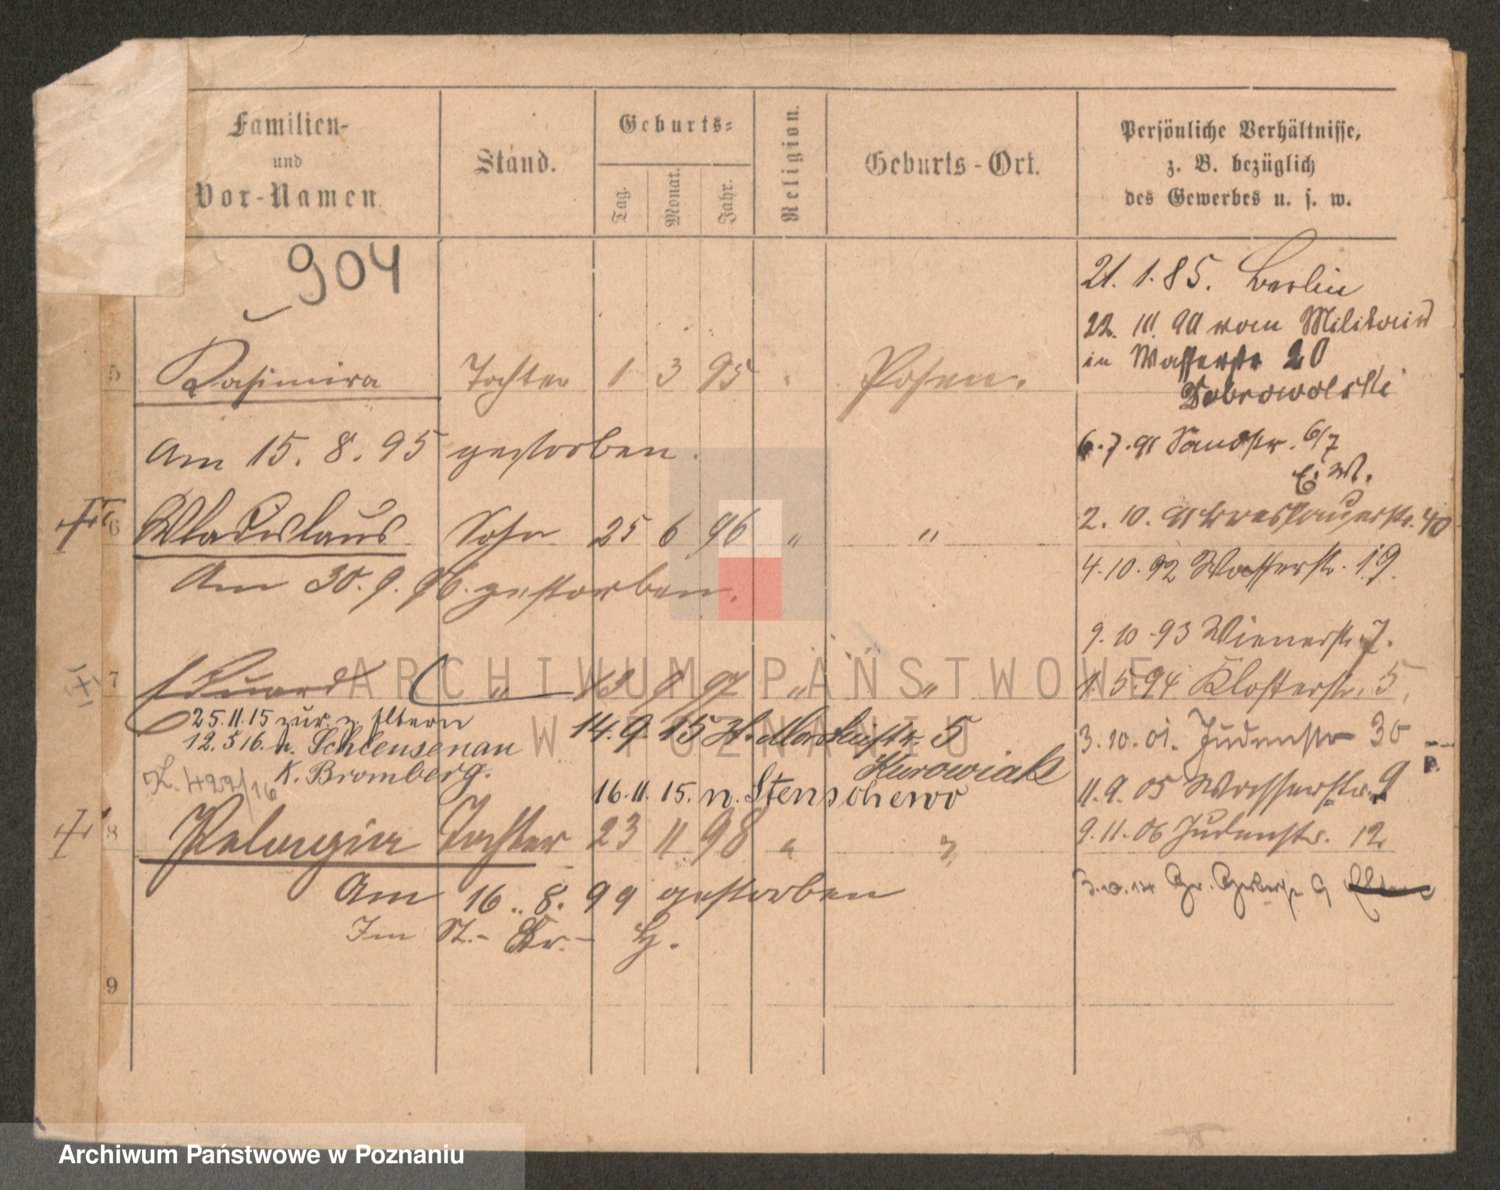 Familien-
und
Vor-Namen.
Stand.
Geburts-
Tag.
Monat.
Jahr.
Religion.
Geburts-Ort.
Persönliche Verhältnisse,
z. B. bezüglich
des Gewerbes u. s. w.
904
21. 1. 85. Berlin
22. III. 90 vom Militair
in Wasserstr 20
Dobrowolski
5 Kasimira Tochter 1 3 95 " Posen.
Am 15. 8. 95 gestorben.
6. 7. 91 Sandstr. 6/7
E. M.
6 Wladislaus Sohn 25 6 96 " "
2. 10. 91 Breslauerstr. 40
Am 30. 9. 96. gestorben.
4. 10. 92 Wasserstr. 19.
9. 10. 93 Wienerstr. 7.
7 Eduard " 13 9 97 " "
1. 5. 94 Klosterstr. 5.
25. 11. 15 zur. z. Eltern
14. 9. 15 H. Martinstr. 5
3. 10. 01. Judenstr 30
12. 5 16. n. Schleusenau
K. Bromberg.
Kurowiak
Z. 422/16
16. 11. 15. n. Stenschewo
11. 9. 05 Wasserstr. 9
8 Pelagia Tochter 23 11 98 " "
9. 11. 06 Judenstr. 12
Am 16. 8. 99 gestorben
3. 10. 14 Gr. Gerberstr 9
Im St. - Kr. - H.
9
ARCHIWUM PAŃSTWOWE
W POZNANIU
Archiwum Państwowe w Poznaniu